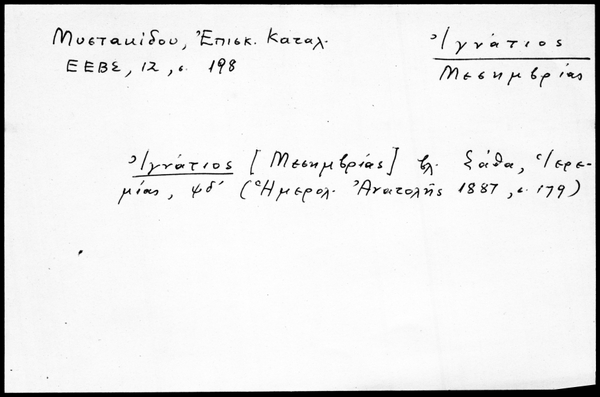 Μυστακίδου, Ἐπισκ. Καταλ.
ΕΕΒΣ, 12, σ. 198
Ἰγνάτιος
Μεσημβρίας
Ἰγνάτιος [Μεσημβρίας] βλ. Σάθα, Ἱερε-
μίας, ϟδʹ (Ἡμερολ. Ἀνατολῆς 1887, σ. 179)